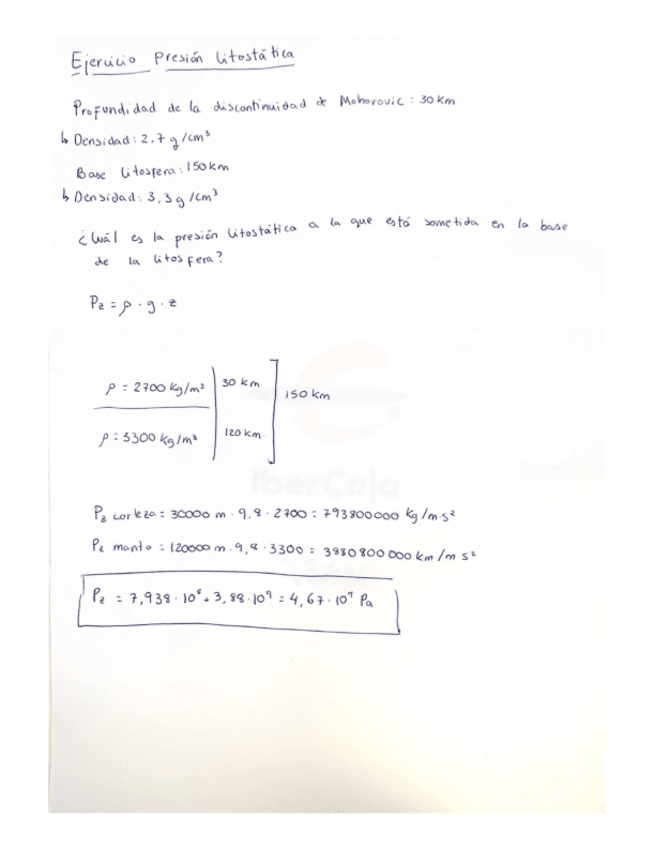 Ejercicio Presión litostática
Profundidad de la discontinuidad de Mohorovic: 30 km
↳ Densidad: 2.7 g/cm³
Base litosfera: 150 km
↳ Densidad: 3,3 g/cm³
¿Cuál es la presión litostática a la que está sometida en la base
de la litosfera?
Pz = ρ · g · z
ρ = 2700 Kg/m³ | 30 km
150 km
ρ = 3300 Kg/m³ | 120 km
IberCaja
Pz corteza = 30000 m · 9,8 · 2700 = 793800000 Kg/m·s²
Pz manto = 120000 m · 9,8 · 3300 = 3880800000 km/m·s²
Pz = 7,938 · 10⁸ + 3,88 · 10⁹ = 4,67 · 10⁹ Pa